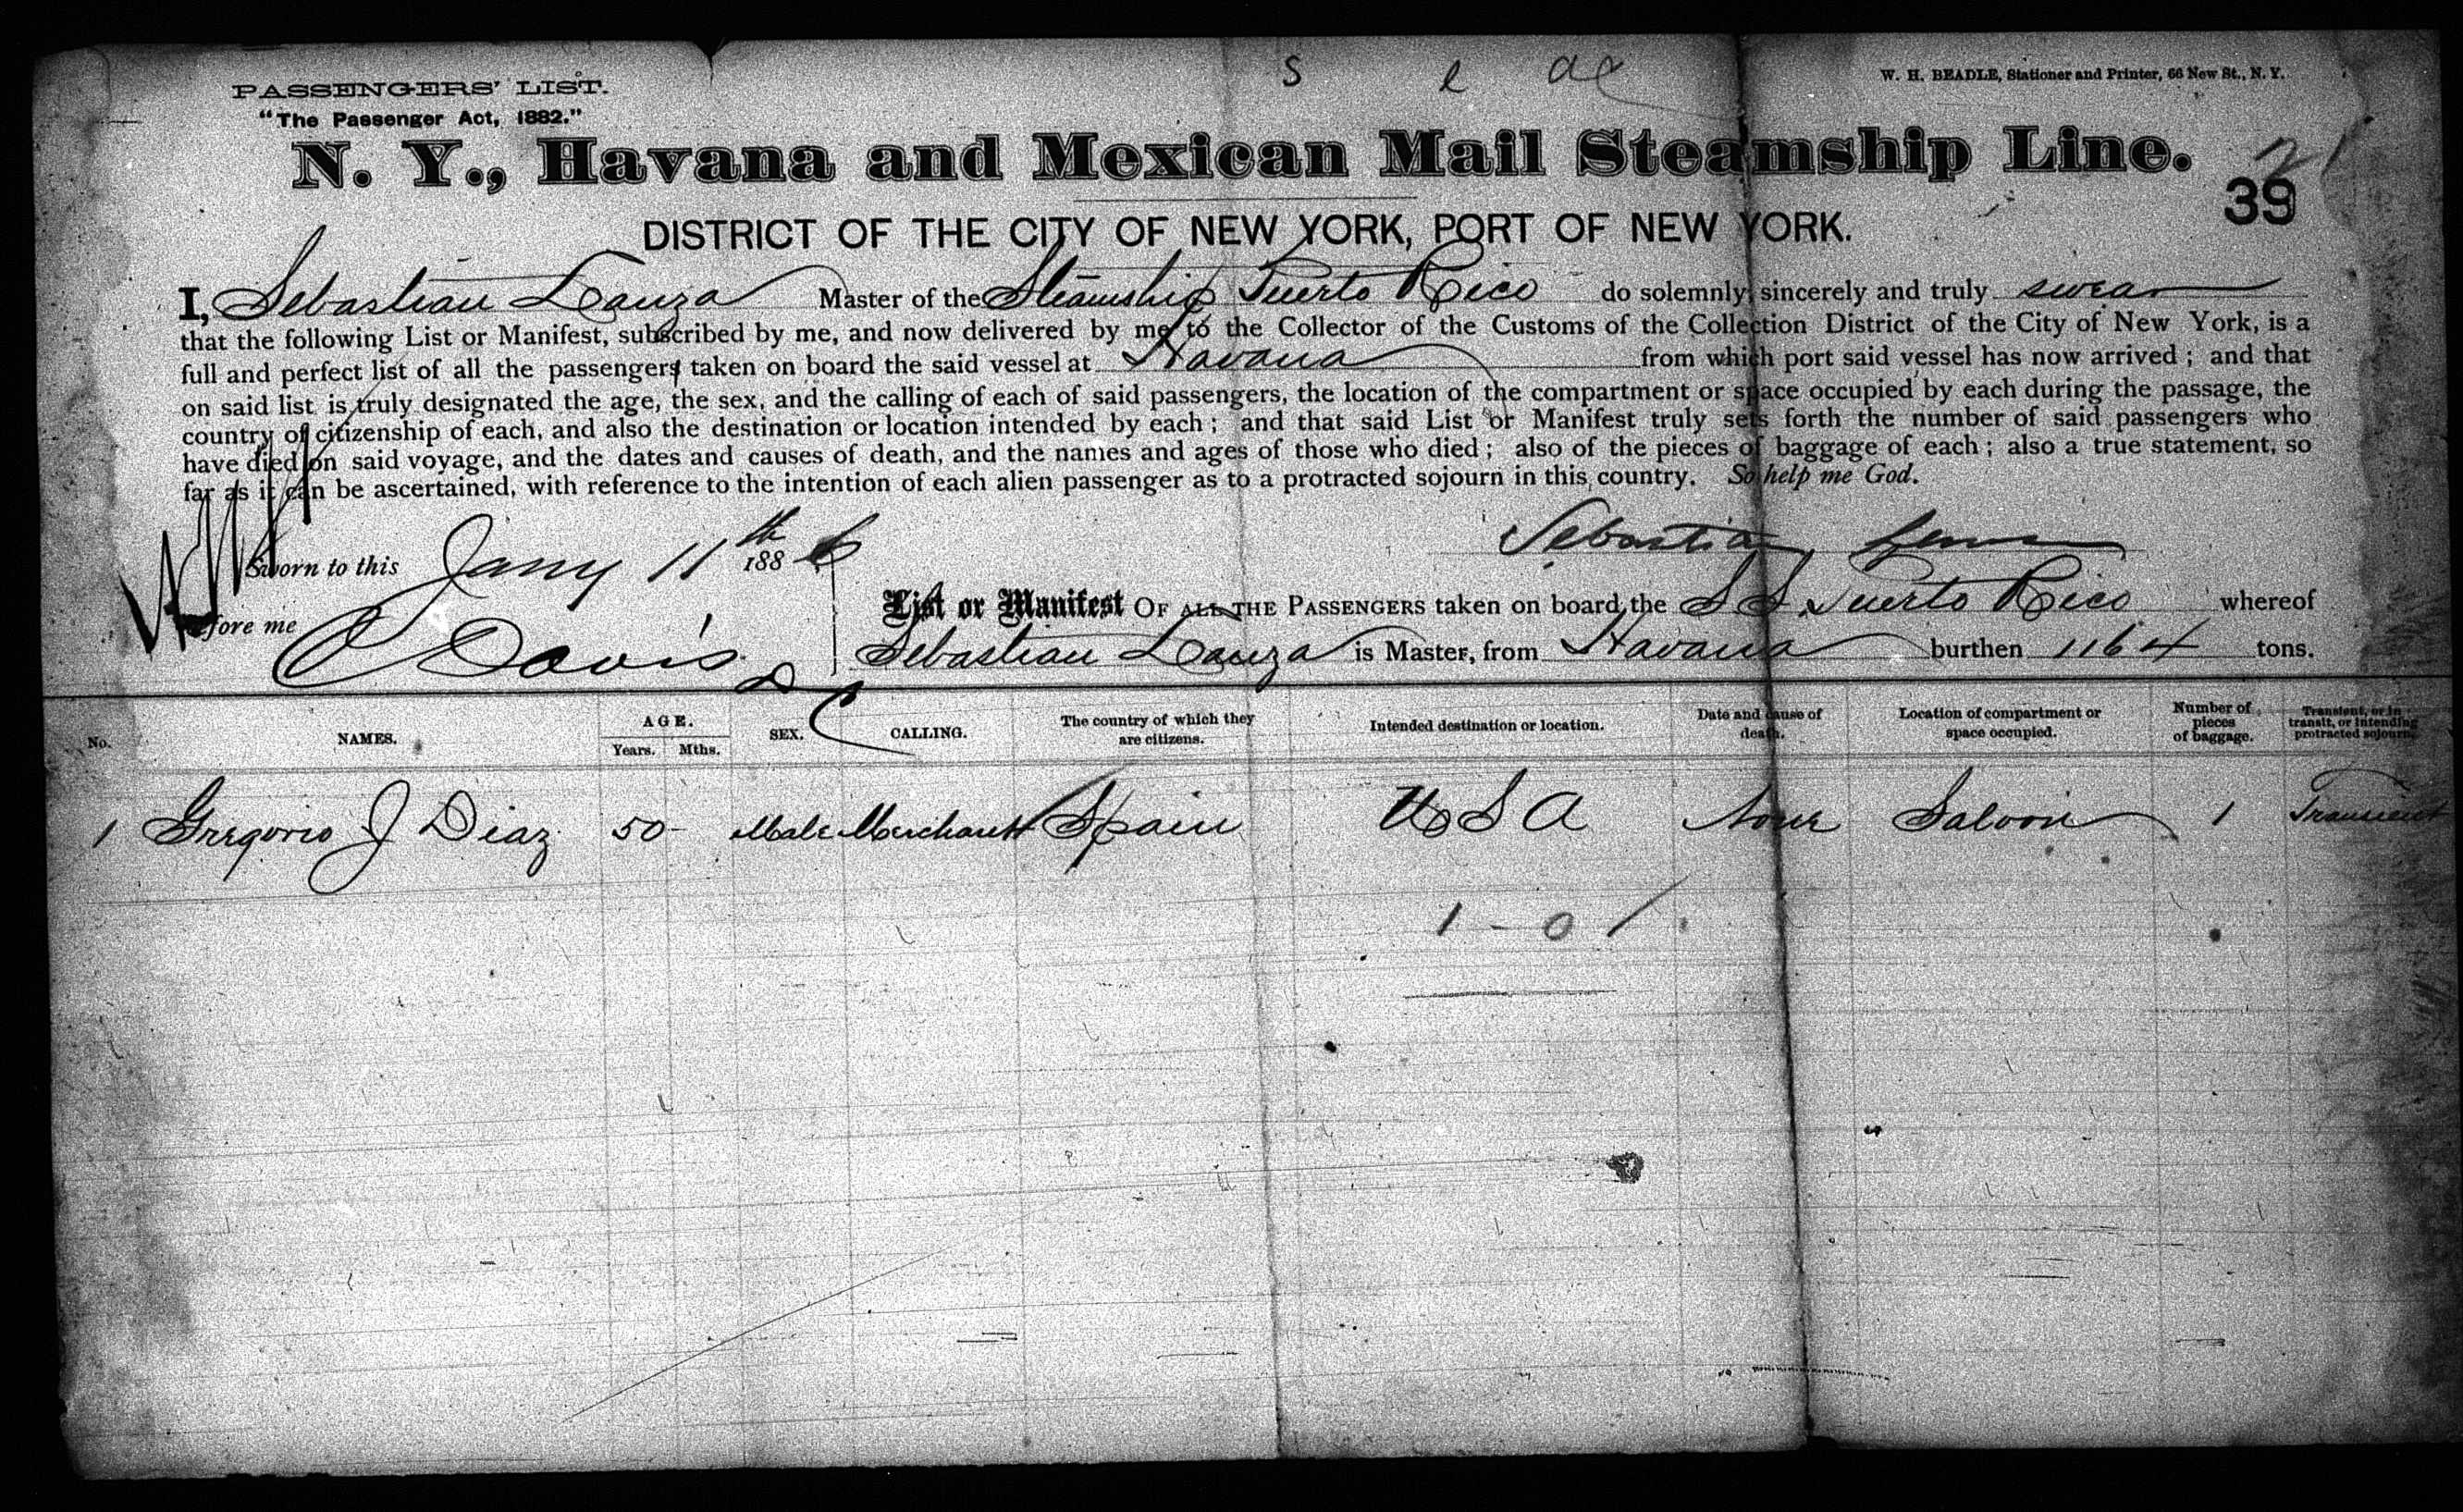 PASSENGERS' LIST.
"The Passenger Act, 1882."
s l
W. H. BEADLE, Stationer and Printer, 66 New St., N. Y.
N. Y., Havana and Mexican Mail Steamship Line.
21
39
DISTRICT OF THE CITY OF NEW YORK, PORT OF NEW YORK.
I, Sebastian Lanza Master of the Steamship Puerto Rico do solemnly, sincerely and truly swear
that the following List or Manifest, subscribed by me, and now delivered by me to the Collector of the Customs of the Collection District of the City of New York, is a
full and perfect list of all the passengers taken on board the said vessel at Havana from which port said vessel has now arrived; and that
on said list is truly designated the age, the sex, and the calling of each of said passengers, the location of the compartment or space occupied by each during the passage, the
country of citizenship of each, and also the destination or location intended by each; and that said List or Manifest truly sets forth the number of said passengers who
have died on said voyage, and the dates and causes of death, and the names and ages of those who died; also of the pieces of baggage of each; also a true statement, so
far as it can be ascertained, with reference to the intention of each alien passenger as to a protracted sojourn in this country. So help me God.
Sebastian
Sworn to this Jany 11th 1886
before me
C Davis
D C
List or Manifest OF ALL THE PASSENGERS taken on board the S S Puerto Rico whereof
Sebastian Lanza is Master, from Havana burthen 1164 tons.
No. NAMES. AGE. Years. Mths. SEX. CALLING. The country of which they are citizens. Intended destination or location. Date and cause of death. Location of compartment or space occupied. Number of pieces of baggage. Transient, or in transit, or intending protracted sojourn.
1 Gregorio J Diaz 50 - Male Merchant Spain U S A None Saloon 1 Transient
1 - 0 /